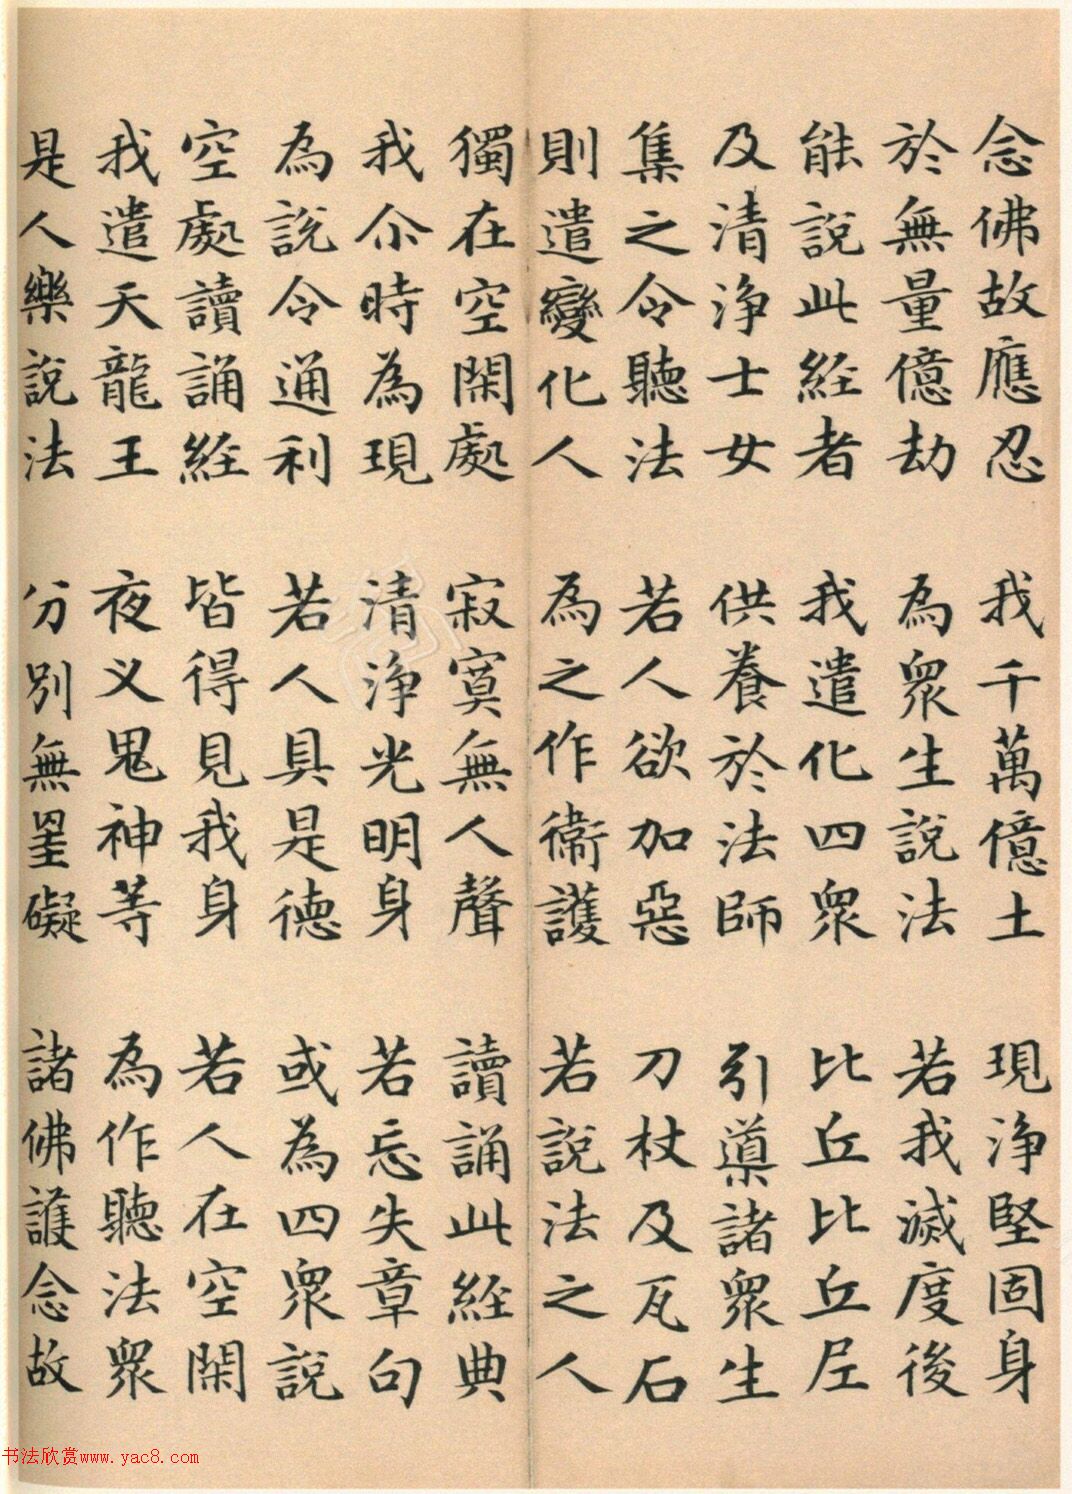 念佛故應忍 我千萬億土 現淨堅固身
於無量億劫 為眾生說法 若我滅度後
能說此經者 我遣化四眾 比丘比丘尼
及清淨士女 供養於法師 引導諸眾生
集之令聽法 若人欲加惡 刀杖及瓦石
則遣變化人 為之作衛護 若說法之人
獨在空閑處 寂寞無人聲 讀誦此經典
我尒時為現 清淨光明身 若忘失章句
為說令通利 若人具是德 或為四眾說
空處讀誦經 皆得見我身 若人在空閑
我遣天龍王 夜叉鬼神等 為作聽法眾
是人樂說法 分別無罣礙 諸佛護念故
书法欣赏www.yac8.com